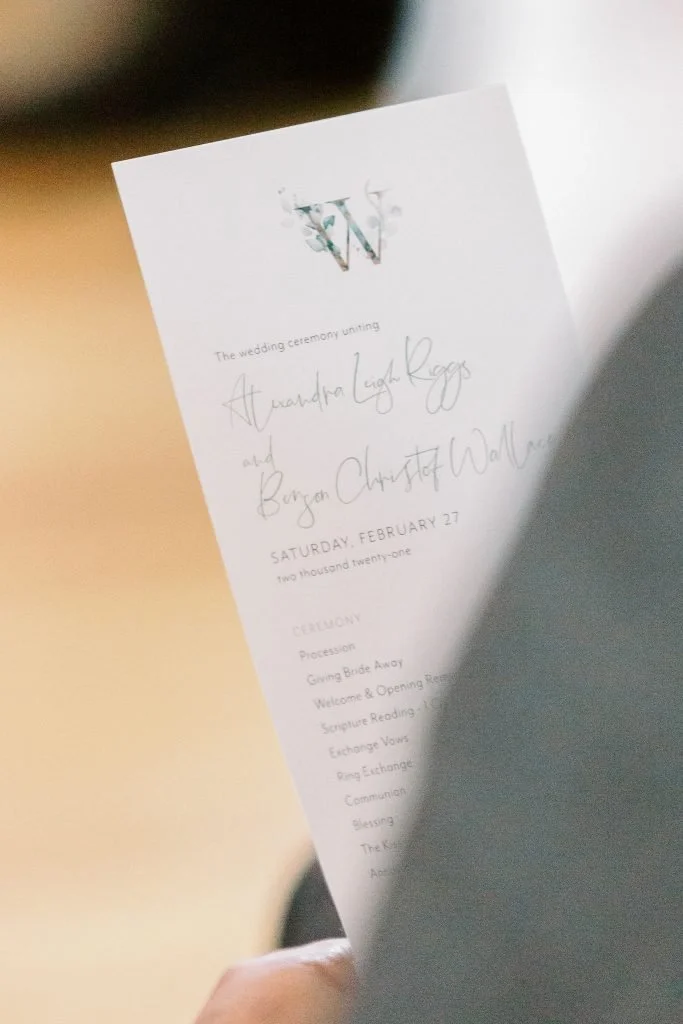 W
The wedding ceremony uniting
Alexandra Leigh Riggs
and
Benson Christof Wallace
SATURDAY, FEBRUARY 27
two thousand twenty-one
CEREMONY
Procession
Giving Bride Away
Welcome & Opening
Scripture Reading -
Exchange Vows
Ring Exchange
Communion
Blessing
The